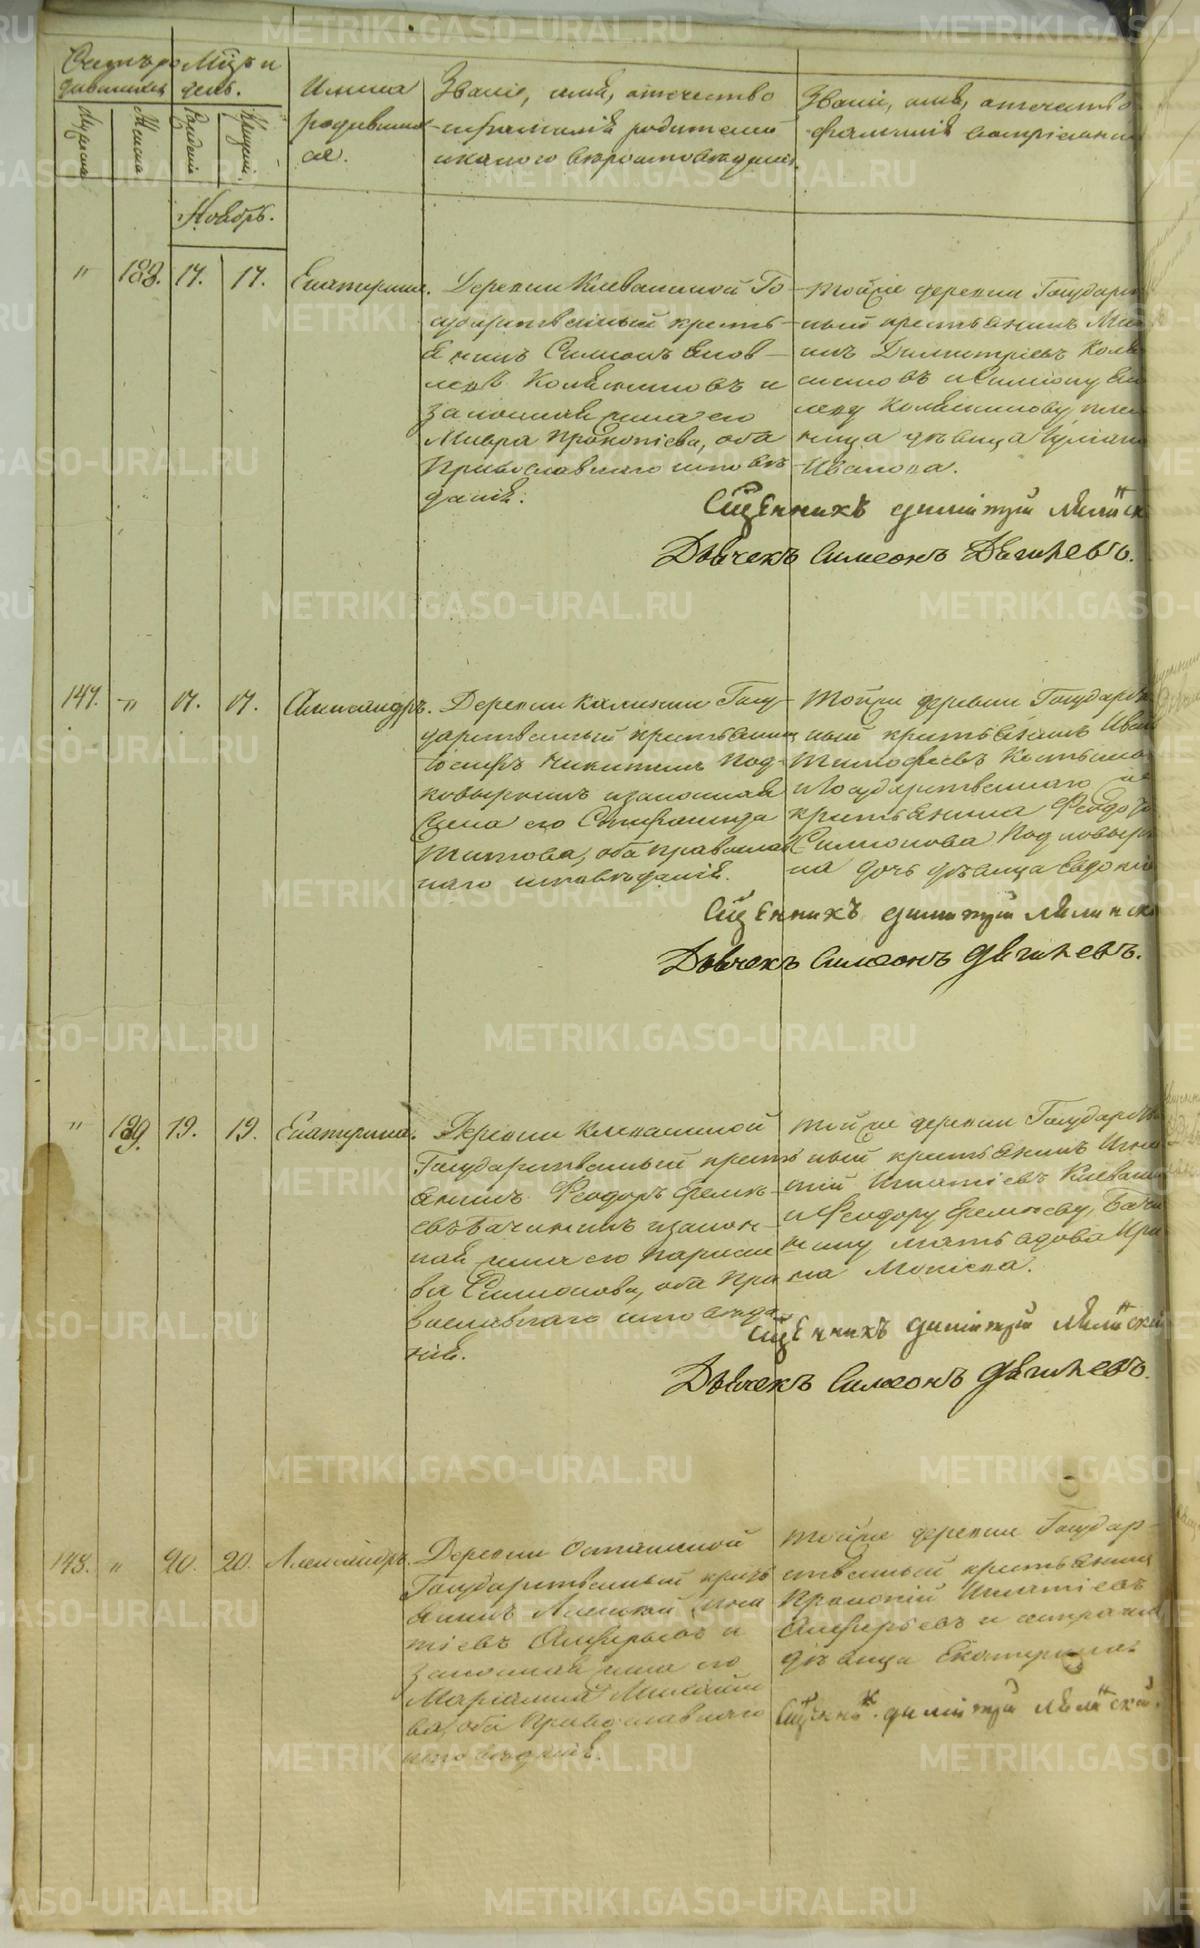 Счетъ ро
дившихся
Мѣсяцъ и
день.
Мужеска
Женска
Рожденія
Крещенія
Имена
родивших
ся.
Званіе, имя, отечество
и фамилія родителей
и какого вѣроисповѣданія.
Званіе, имя, отечество
фамилія воспріемни
Ноябрь.
" 138. 17. 17. Екатерина.
Деревни Клевакиной Го
сударственный кресть
янинъ Симеонъ
Колясниковъ и
законная жена его
Мавра Прокопіева, оба
Православнаго исповѣ
данія.
Тойже деревни Государст
ный крестьянинъ
Димитріевъ Коля
сниковъ и Симеону
Колясникову племя
ница дѣвица
Иванова.
Священникъ Димитрій
Дьячекъ Симеонъ Дягилевъ.
147. " 17. 17. Александръ.
Деревни Калинин Госу
дарственный крестьянинъ
Іосифъ Никитинъ Под
ковыркинъ и законная
жена его Стефанида
Титова, оба православ
наго исповѣданія.
Тойже деревни Государств
ный крестьянинъ Иванъ
Тимофеевъ
и Государственнаго
крестьянина Феодора
Симионова Подковырки
на дочь дѣвица Евдокія
Священникъ Димитрій
Дьячекъ Симеонъ Дягилевъ.
" 139. 19. 19. Екатерина.
Деревни Клевакиной
Государственный кресть
янинъ Феодоръ Еремѣ
евъ Бачининъ и закон
ная жена его Параске
ва Симионова, оба Пра
вославнаго исповѣда
нія.
Тойже деревни Государств
ный крестьянинъ Игна
тій Игнатіевъ Клевакин
и Феодору Еремѣеву, Бачи
нину мать вдова Ири
на Моисеева.
Священникъ Димитрій
Дьячекъ Симеонъ Дягилевъ.
148. " 20. 20. Александръ.
Деревни Осташкиной
Государственный кресть
янинъ Алексѣй Игна
тіевъ Алферьевъ и
законная жена его
Маріамна Михайло
ва, оба Православнаго
исповѣданія.
Тойже деревни Государ
ственный крестьянинъ
Прокопій Игнатіевъ
Алферьевъ и
дѣвица Екатерина
Священникъ Димитрій
METRIKI.GASO-URAL.RU